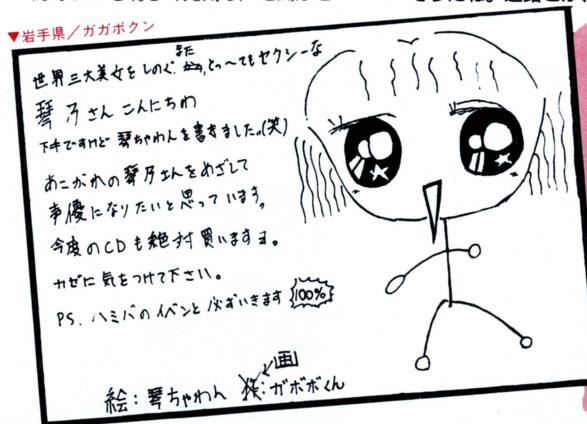 ▼岩手県／ガガボクン
世界三大美女をしのぐ、また、とぅ〜てもセクシーな
琴乃さん こんにちわ
下手ですけど 琴ちゃわんを書きました。(笑)
あこがれの琴乃さんをめざして
声優になりたいと思っています。
今度のCDも絶対買いますヨ。
カゼに気をつけて下さい。
PS. ハミパのイベンと 必ずいきます 100%
画
絵：琴ちゃわん ：ガボボくん